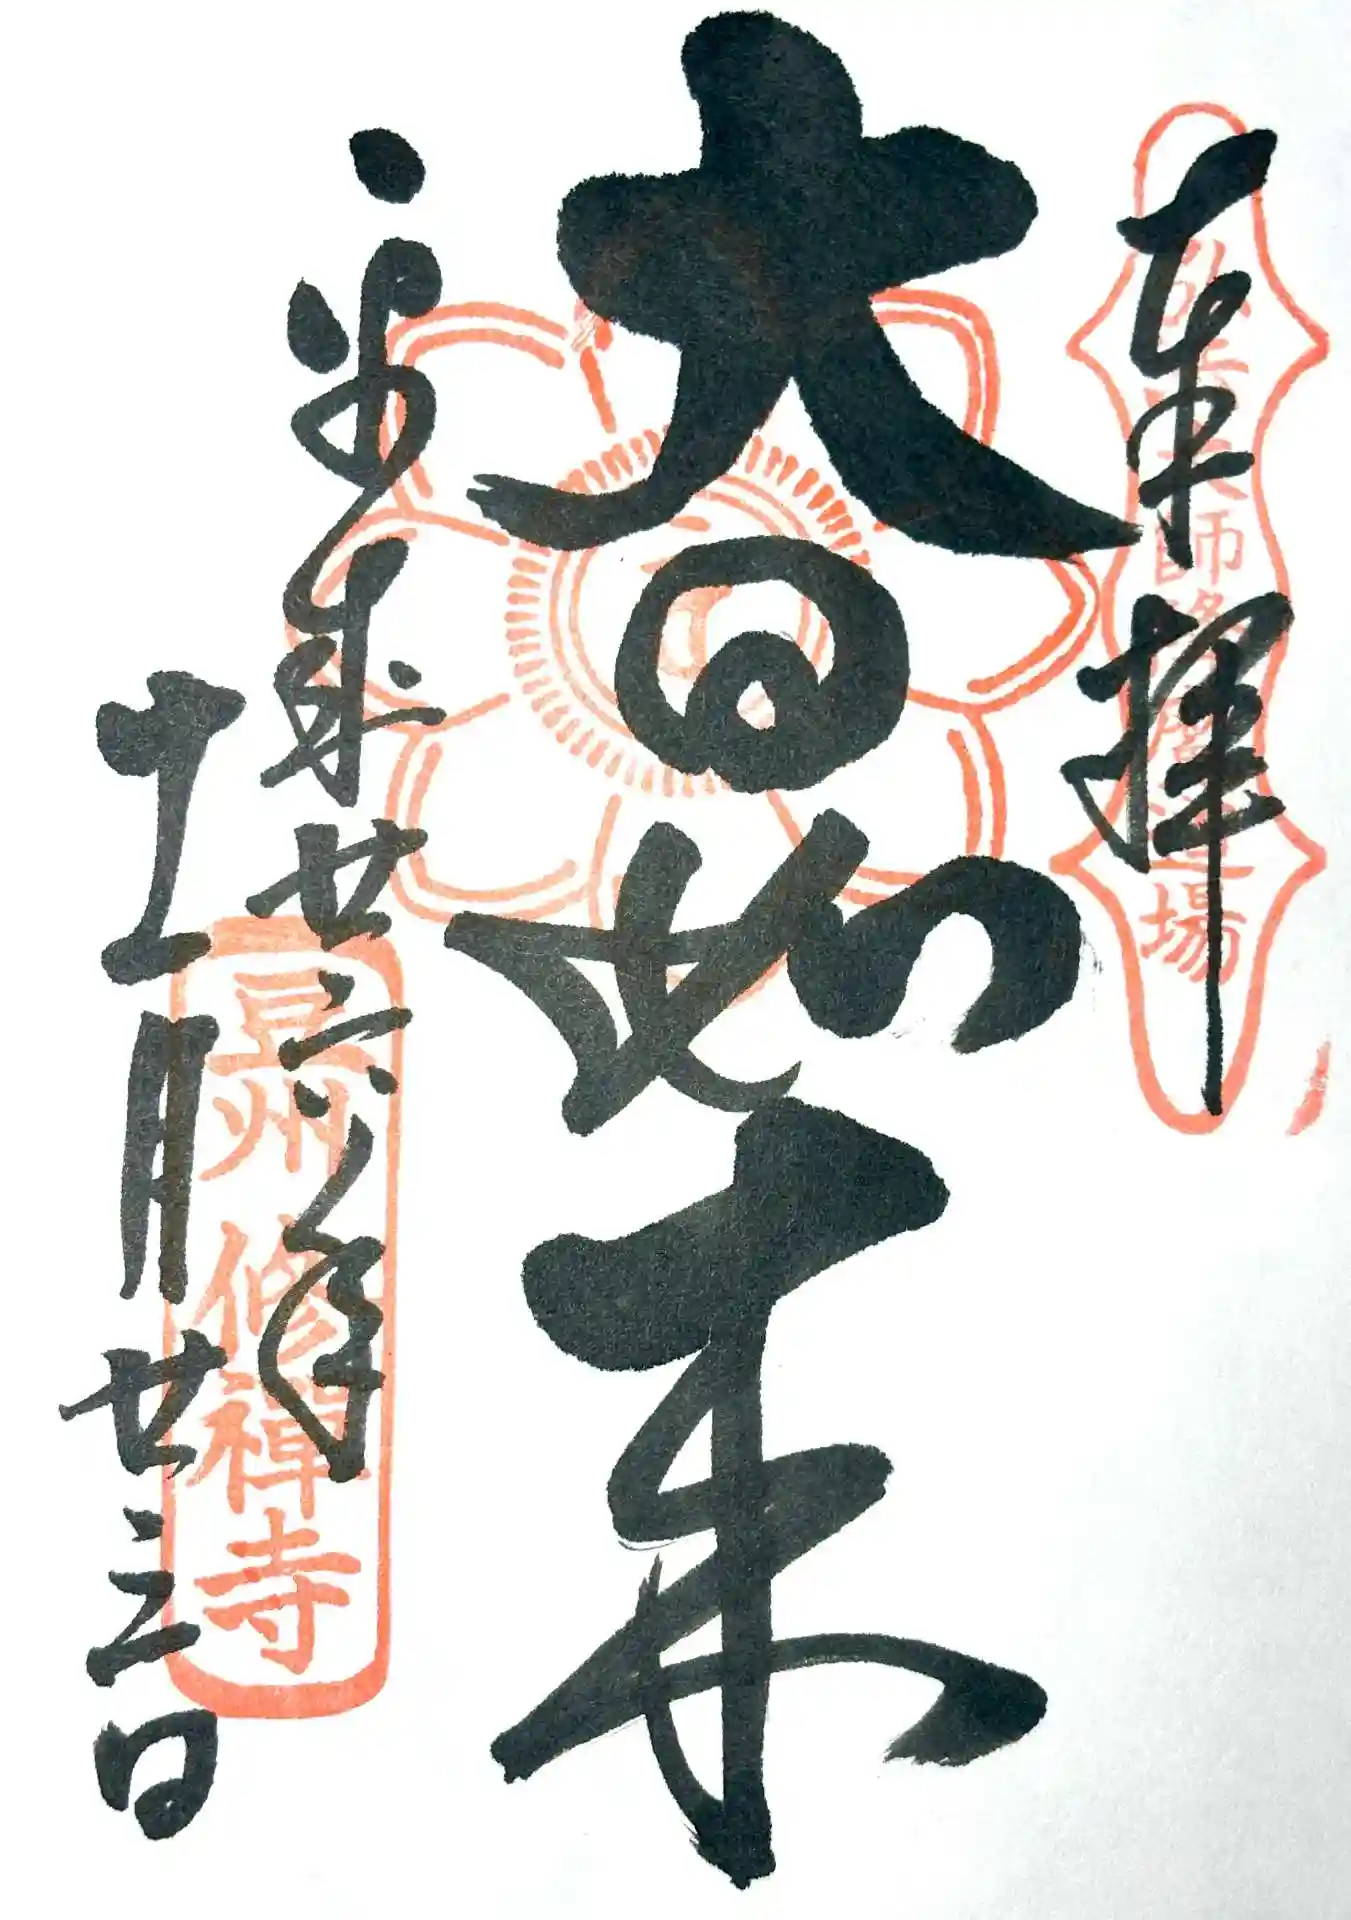 奉拝
弘法大師降魔道場
大日如来
平成廿六年
工月廿三日
豆州 修禅寺